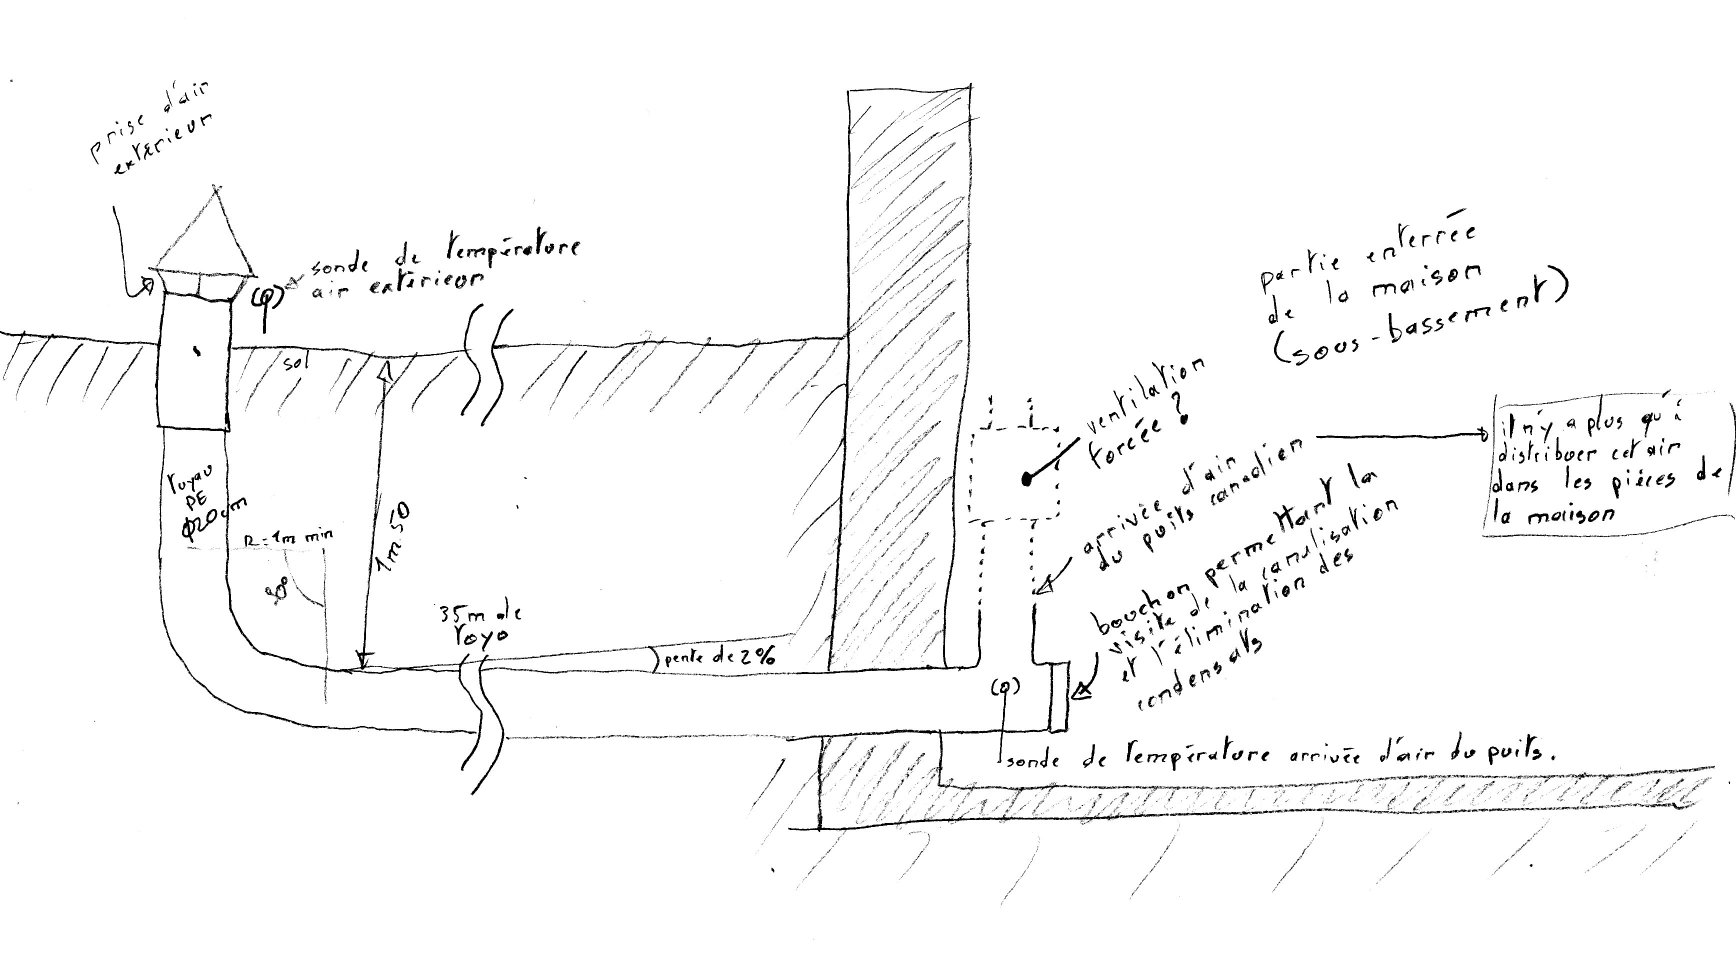 prise d'air
exterieur
sonde de température
air exterieur
sol
tuyau
PE
Ø20cm
R=1m min
90°
1m.50
35m de
toyo
pente de 2%
ventilation
forcée ?
partie enterrée
de la maison
(sous-bassement)
arrivée d'air
du puits canadien
il n'y a plus qu'à
distribuer cet air
dans les pièces de
la maison
bouchon permettant la
visite de la canalisation
et l'élimination des
condensats
sonde de température arrivée d'air du puits.